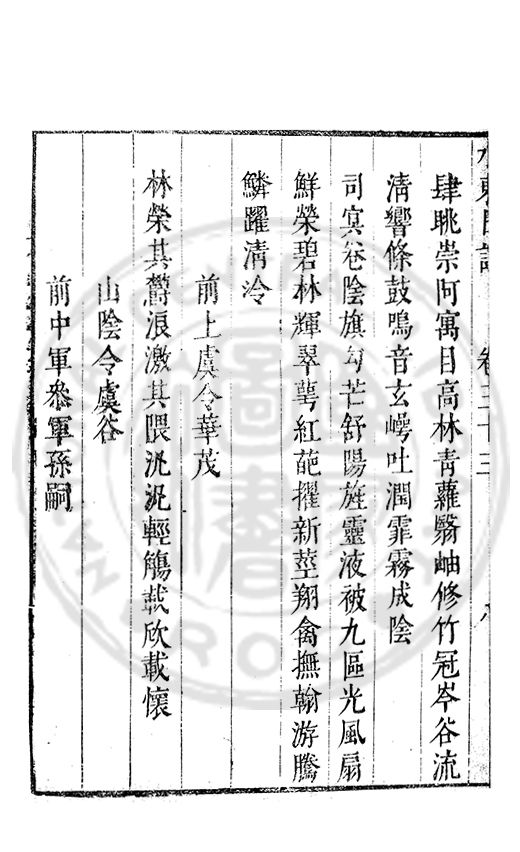 水東日記 卷三十三 八
肆眺崇阿寓目高林青蘿翳岫修竹冠岑谷流
清響條鼓鳴音玄崿吐潤霏霧成陰
司冥卷陰旗勾芒舒陽旌靈液被九區光風扇
鮮榮碧林輝翠萼紅葩擢新莖翔禽撫翰游騰
鱗躍清泠
前上虞令華茂
林榮其鬱浪激其隈汎汎輕觴載欣載懷
山陰令虞谷
前中軍參軍孫嗣